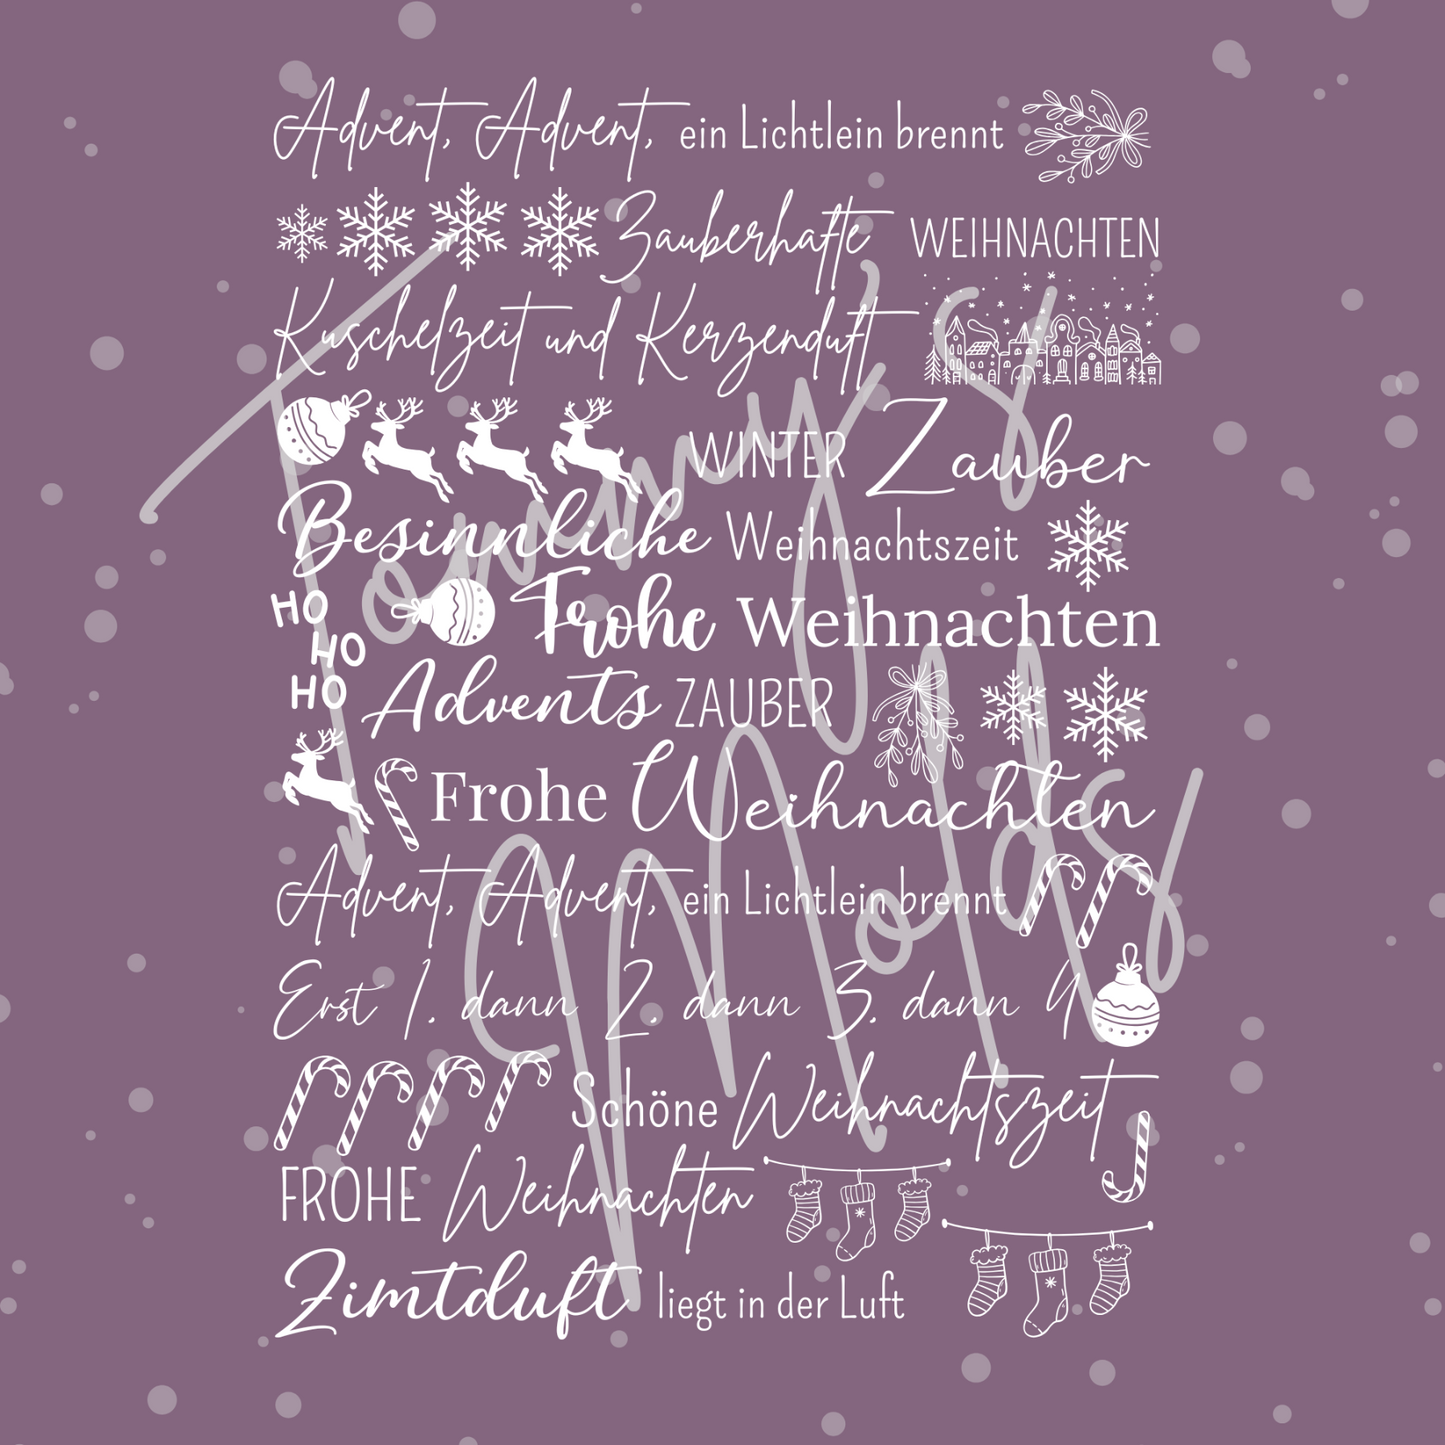 Advent, Advent, ein Lichtlein brennt
Zauberhafte WEIHNACHTEN
Kuschelzeit und Kerzenduft
WINTER Zauber
Besinnliche Weihnachtszeit
HO
HO
HO
Frohe Weihnachten
Advents ZAUBER
Frohe Weihnachten
Advent, Advent, ein Lichtlein brennt
Erst 1. dann 2. dann 3. dann 4
Schöne Weihnachtszeit
FROHE Weihnachten
Zimtduft liegt in der Luft
Tommy's
Molds